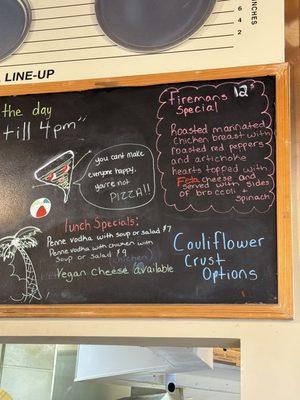 6
4
2
INCHES
LINE-UP
the day
till 4pm"
Firemans 12"
Special
Roasted marinated
Chicken breast with
roasted red peppers
and artichoke
hearts topped with
Feta cheese and
served with sides
of broccoli + spinach
you cant make
everyone happy,
you're not
PIZZA!!
Lunch Specials:
Penne vodka with soup or salad $7
Penne vodka with chicken with
soup or salad $9
Vegan cheese available
Cauliflower
Crust
Options